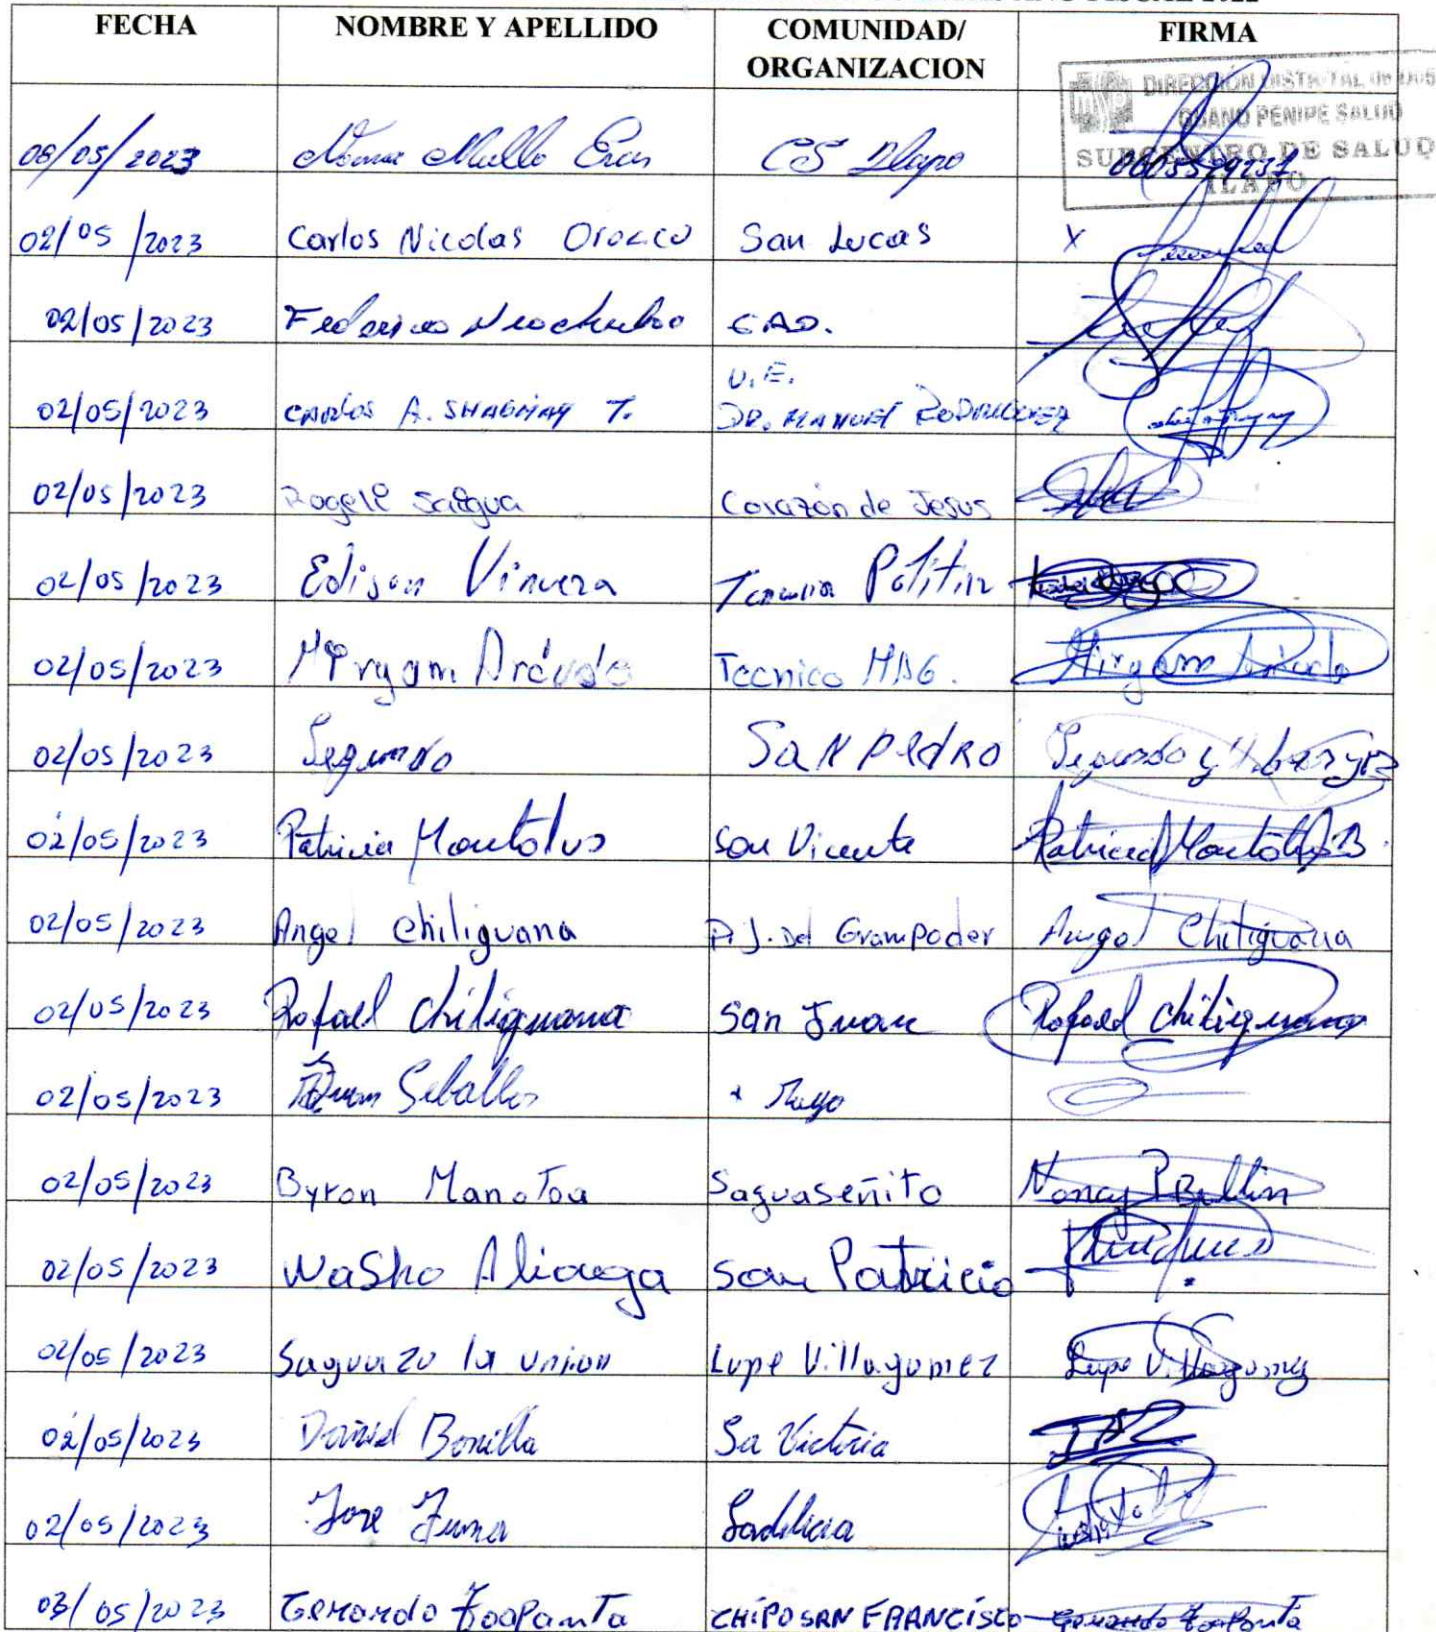 FECHA NOMBRE Y APELLIDO COMUNIDAD/ FIRMA
ORGANIZACION
DIRECCIÓN DISTRITAL
GUANO PENIPE SALUD
SUBCENTRO DE SALUD
ILAPO
08/05/2023 CS Ilapo
02/05/2023 Carlos Nicolas Orozco San Lucas X
02/05/2023 Federico GAD.
U.E.
02/05/2023 Carlos A. SHAGÑAY T. DR. MANUEL RODRIGUEZ
02/05/2023 Rogele Saigua Corazón de Jesus
02/05/2023 Edison Vimera Tenencia Politin
02/05/2023 Miryam Arévalo Tecnico MAG. Miryam Arévalo
02/05/2023 Segundo San PedRO Segundo
02/05/2023 Patricia Montalvo San Vicente Patricia Montalvo B.
02/05/2023 Angel Chiliguana J. Del GramPoder Angel Chiliguana
02/05/2023 Rafael Chiliguana San Juan Rafael Chiliguana
02/05/2023 Juan Seballos Mayo
02/05/2023 Byron Manotoa Saguaseñito Nancy
02/05/2023 Washo Aliaga San Patricio
02/05/2023 Saguazo la union Lupe Villagomez Lupe Villagomez
02/05/2023 David Bonilla La Victoria
02/05/2023 Jose
03/05/2023 Gerardo ToaPanTa CHIPO SAN FRANCÍSCO Gerardo ToaPanta